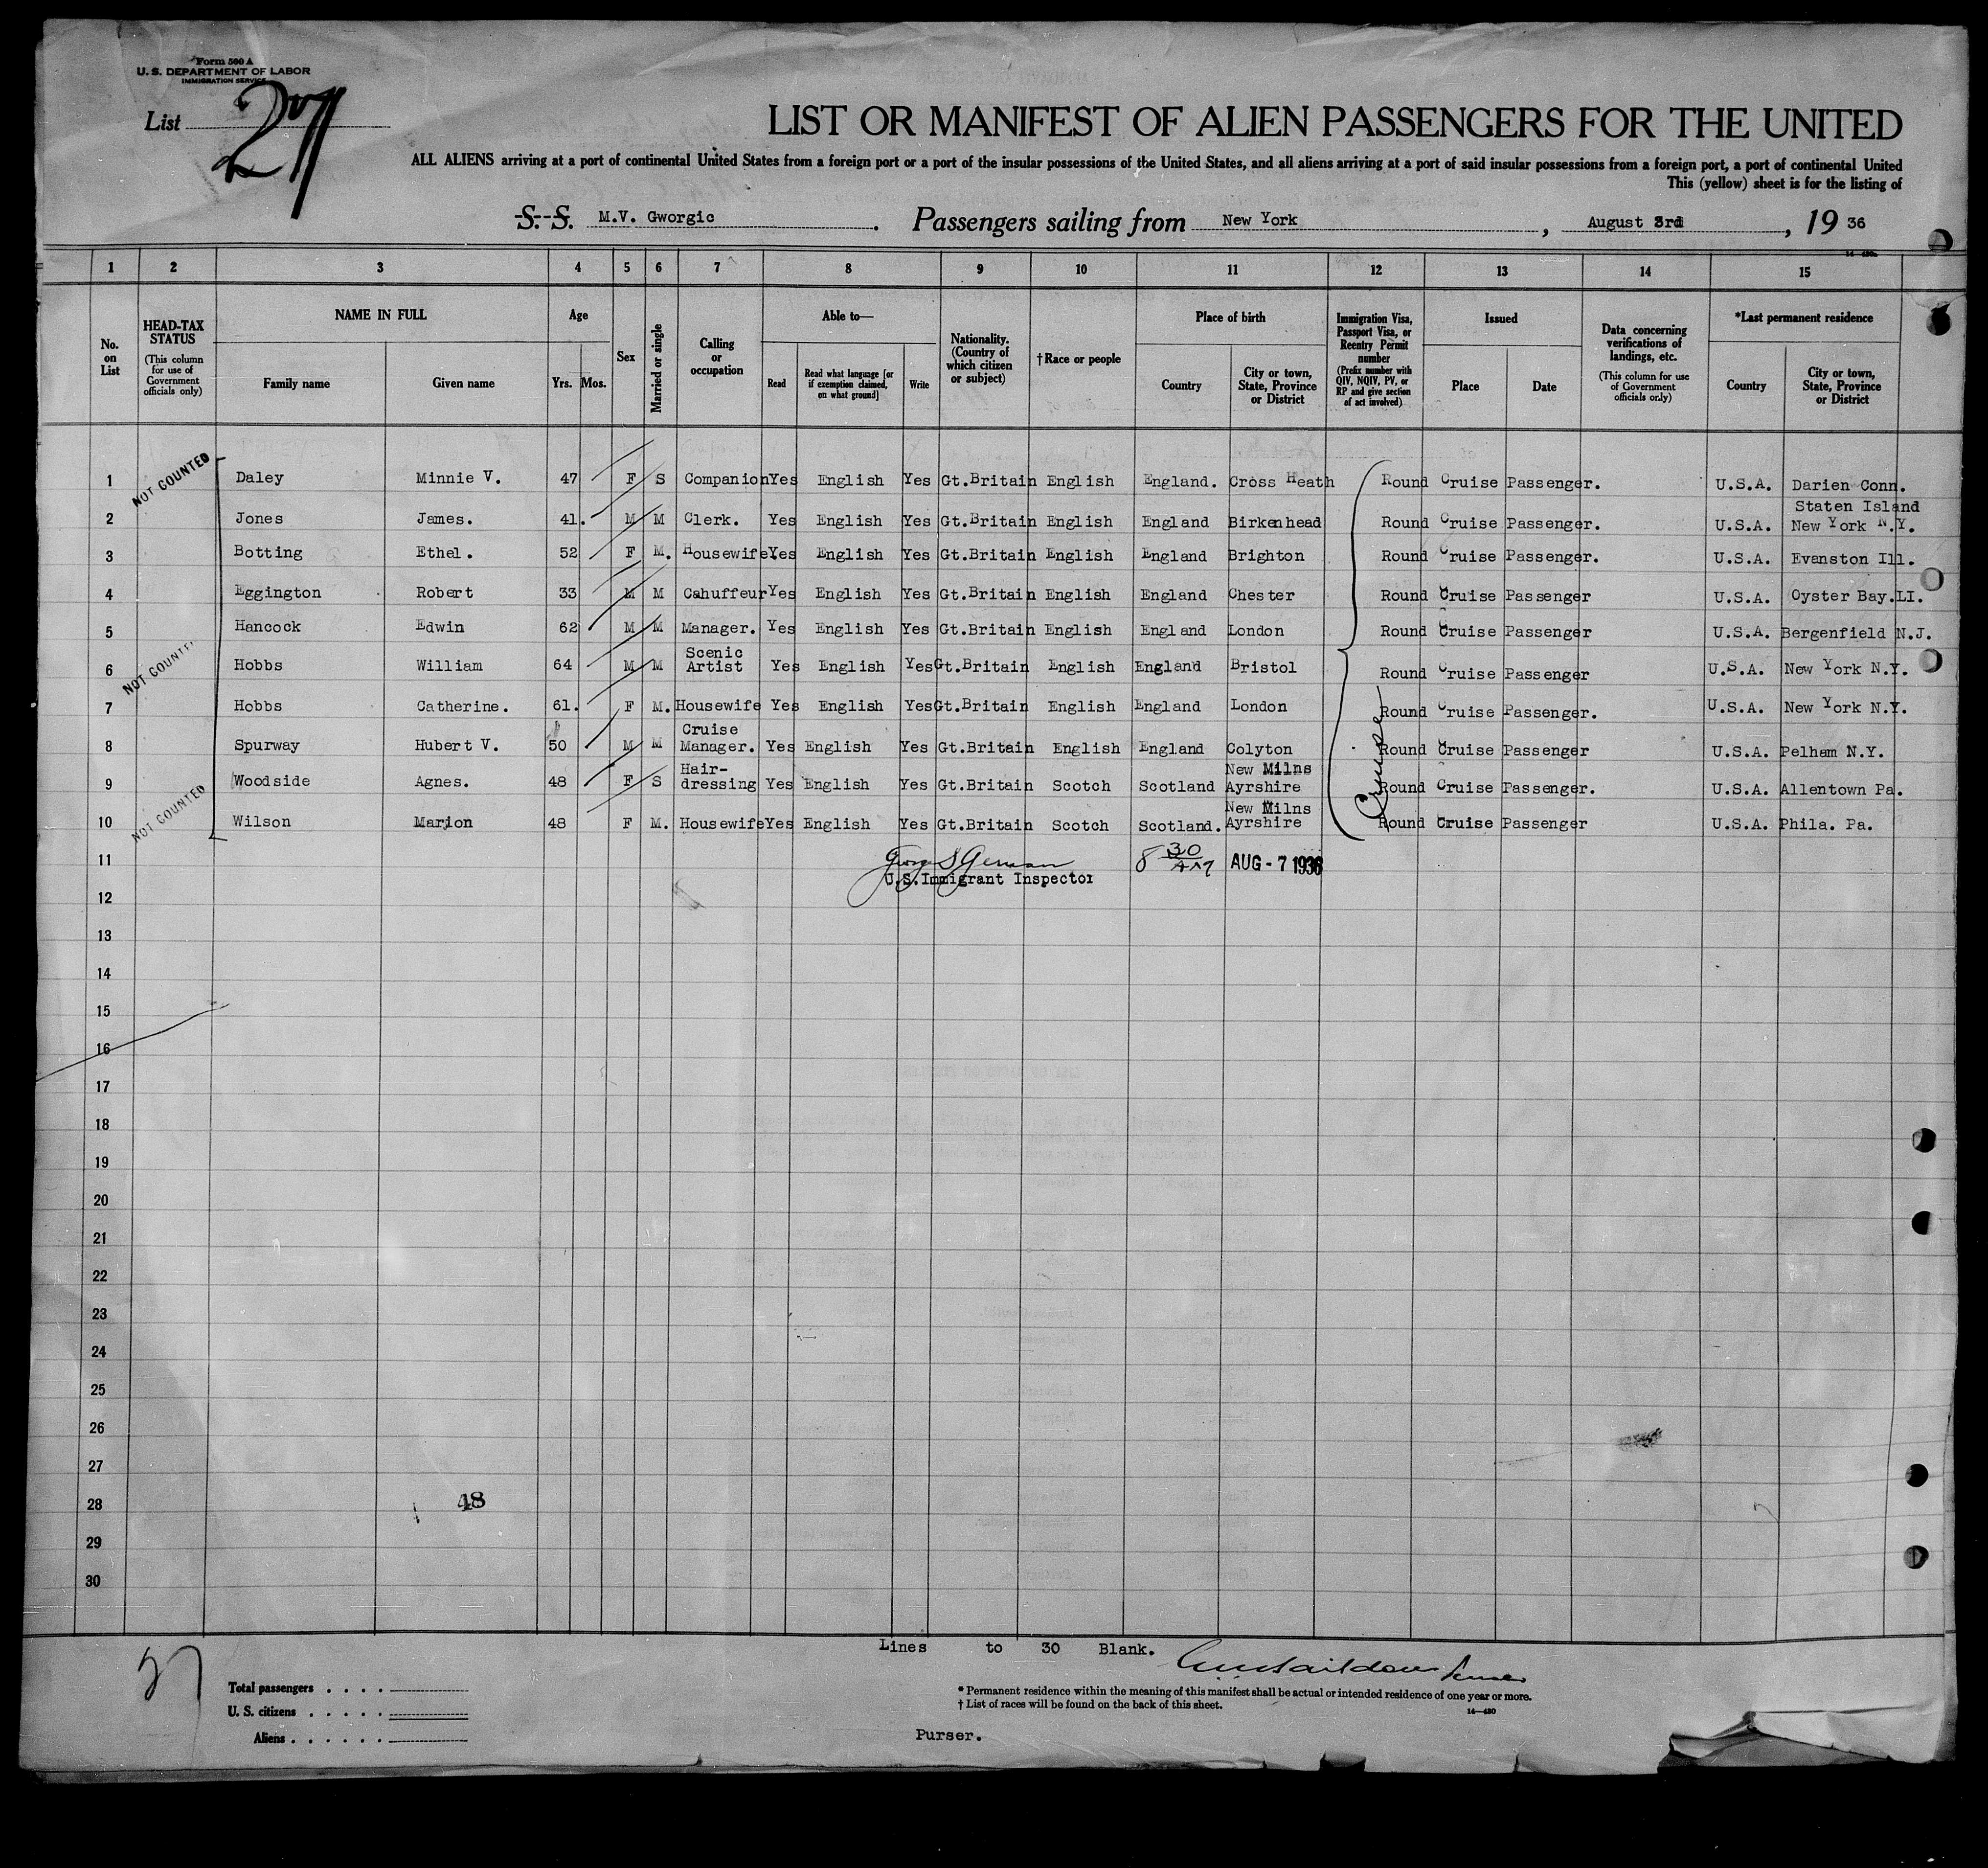 Form 500 A
U. S. DEPARTMENT OF LABOR
IMMIGRATION SERVICE
List 27
LIST OR MANIFEST OF ALIEN PASSENGERS FOR THE UNITED
ALL ALIENS arriving at a port of continental United States from a foreign port or a port of the insular possessions of the United States, and all aliens arriving at a port of said insular possessions from a foreign port, a port of continental United
This (yellow) sheet is for the listing of
S. S. M.V. Gworgic. Passengers sailing from New York, August 3rd, 19 36
1 2 3 4 5 6 7 8 9 10 11 12 13 14 15
No. on List
HEAD-TAX STATUS (This column for use of Government officials only)
NAME IN FULL
Family name Given name
Age
Yrs. Mos.
Sex
Married or single
Calling or occupation
Able to—
Read Read what language [or if exemption claimed, on what ground] Write
Nationality. (Country of which citizen or subject)
†Race or people
Place of birth
Country City or town, State, Province or District
Immigration Visa, Passport Visa, or Reentry Permit number (Prefix number with QIV, NQIV, PV, or RP and give section of act involved)
Issued
Place Date
Data concerning verifications of landings, etc. (This column for use of Government officials only)
*Last permanent residence
Country City or town, State, Province or District
NOT COUNTED
1 Daley Minnie V. 47 F S Companion Yes English Yes Gt.Britain English England. Cross Heath Round Cruise Passenger. U.S.A. Darien Conn.
2 Jones James. 41. M M Clerk. Yes English Yes Gt.Britain English England Birkenhead Round Cruise Passenger. U.S.A. Staten Island New York N.Y.
3 Botting Ethel. 52 F M. Housewife Yes English Yes Gt.Britain English England Brighton Round Cruise Passenger. U.S.A. Evanston Ill.
4 Eggington Robert 33 M M Cahuffeur Yes English Yes Gt.Britain English England Chester Round Cruise Passenger U.S.A. Oyster Bay.LI.
5 Hancock Edwin 62 M M Manager. Yes English Yes Gt.Britain English England London Round Cruise Passenger U.S.A. Bergenfield N.J.
NOT COUNTED
6 Hobbs William 64 M M Scenic Artist Yes English Yes Gt.Britain English England Bristol Round Cruise Passenger U.S.A. New York N.Y.
7 Hobbs Catherine. 61. F M. Housewife Yes English Yes Gt.Britain English England London Round Cruise Passenger. U.S.A. New York N.Y.
8 Spurway Hubert V. 50 M M Cruise Manager. Yes English Yes Gt.Britain English England Colyton Round Cruise Passenger U.S.A. Pelham N.Y.
9 Woodside Agnes. 48 F S Hair-dressing Yes English Yes Gt.Britain Scotch Scotland New Milns Ayrshire Round Cruise Passenger. U.S.A. Allentown Pa.
NOT COUNTED
10 Wilson Marion 48 F M. Housewife Yes English Yes Gt.Britain Scotch Scotland. New Milns Ayrshire Round Cruise Passenger U.S.A. Phila. Pa.
Cruise
11 8 30 AM AUG - 7 1936
U.S.Immigrant Inspector
12
13
14
15
16
17
18
19
20
21
22
23
24
25
26
27
28 48
29
30
Lines to 30 Blank.
27
Total passengers . . . .
U. S. citizens . . . . .
Aliens . . . . . .
* Permanent residence within the meaning of this manifest shall be actual or intended residence of one year or more.
† List of races will be found on the back of this sheet.
14—430
Purser.